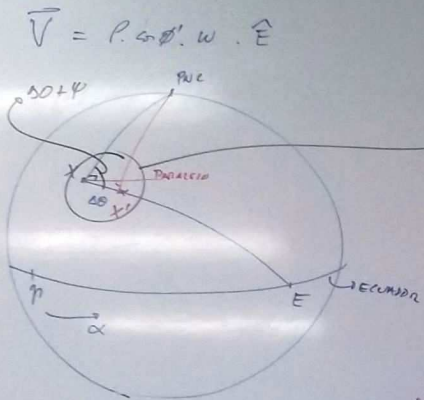 V = ρ. cos φ'. ω . Ê
PNC
ΔΘ+Ψ
X
PARALELO
Δθ
X'
E
ECUADOR
α